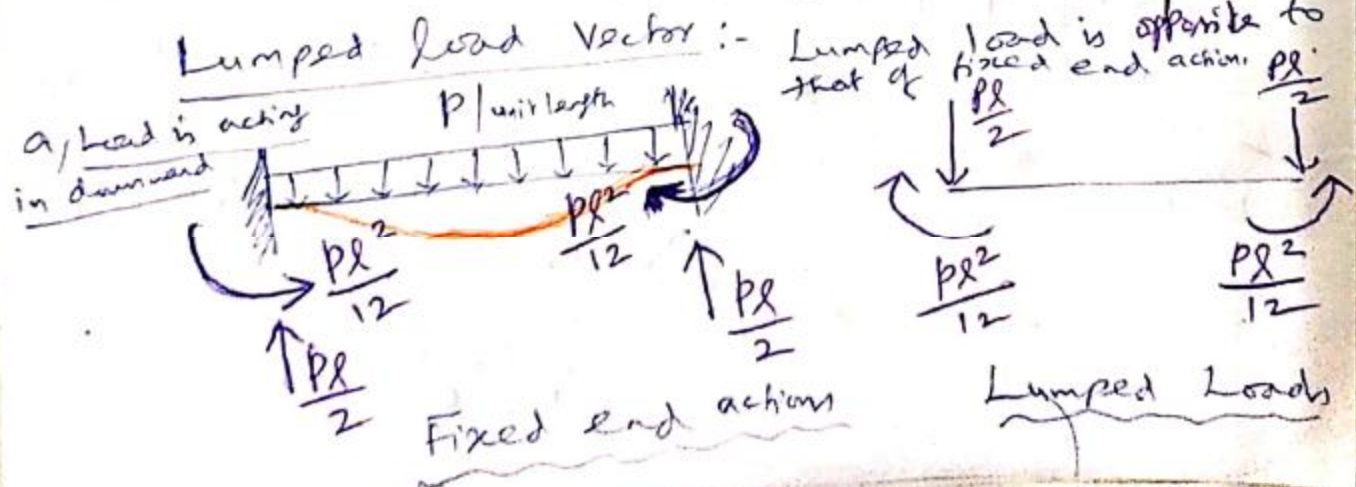 Lumped load Vector :-
Lumped load is opposite to
that of fixed end action.
a, Load is acting
in downward
P / unit length
Pl²/12
Pl²/12
Pl/2
Pl/2
Fixed end actions
Pl/2
Pl/2
Pl²/12
Pl²/12
Lumped Loads